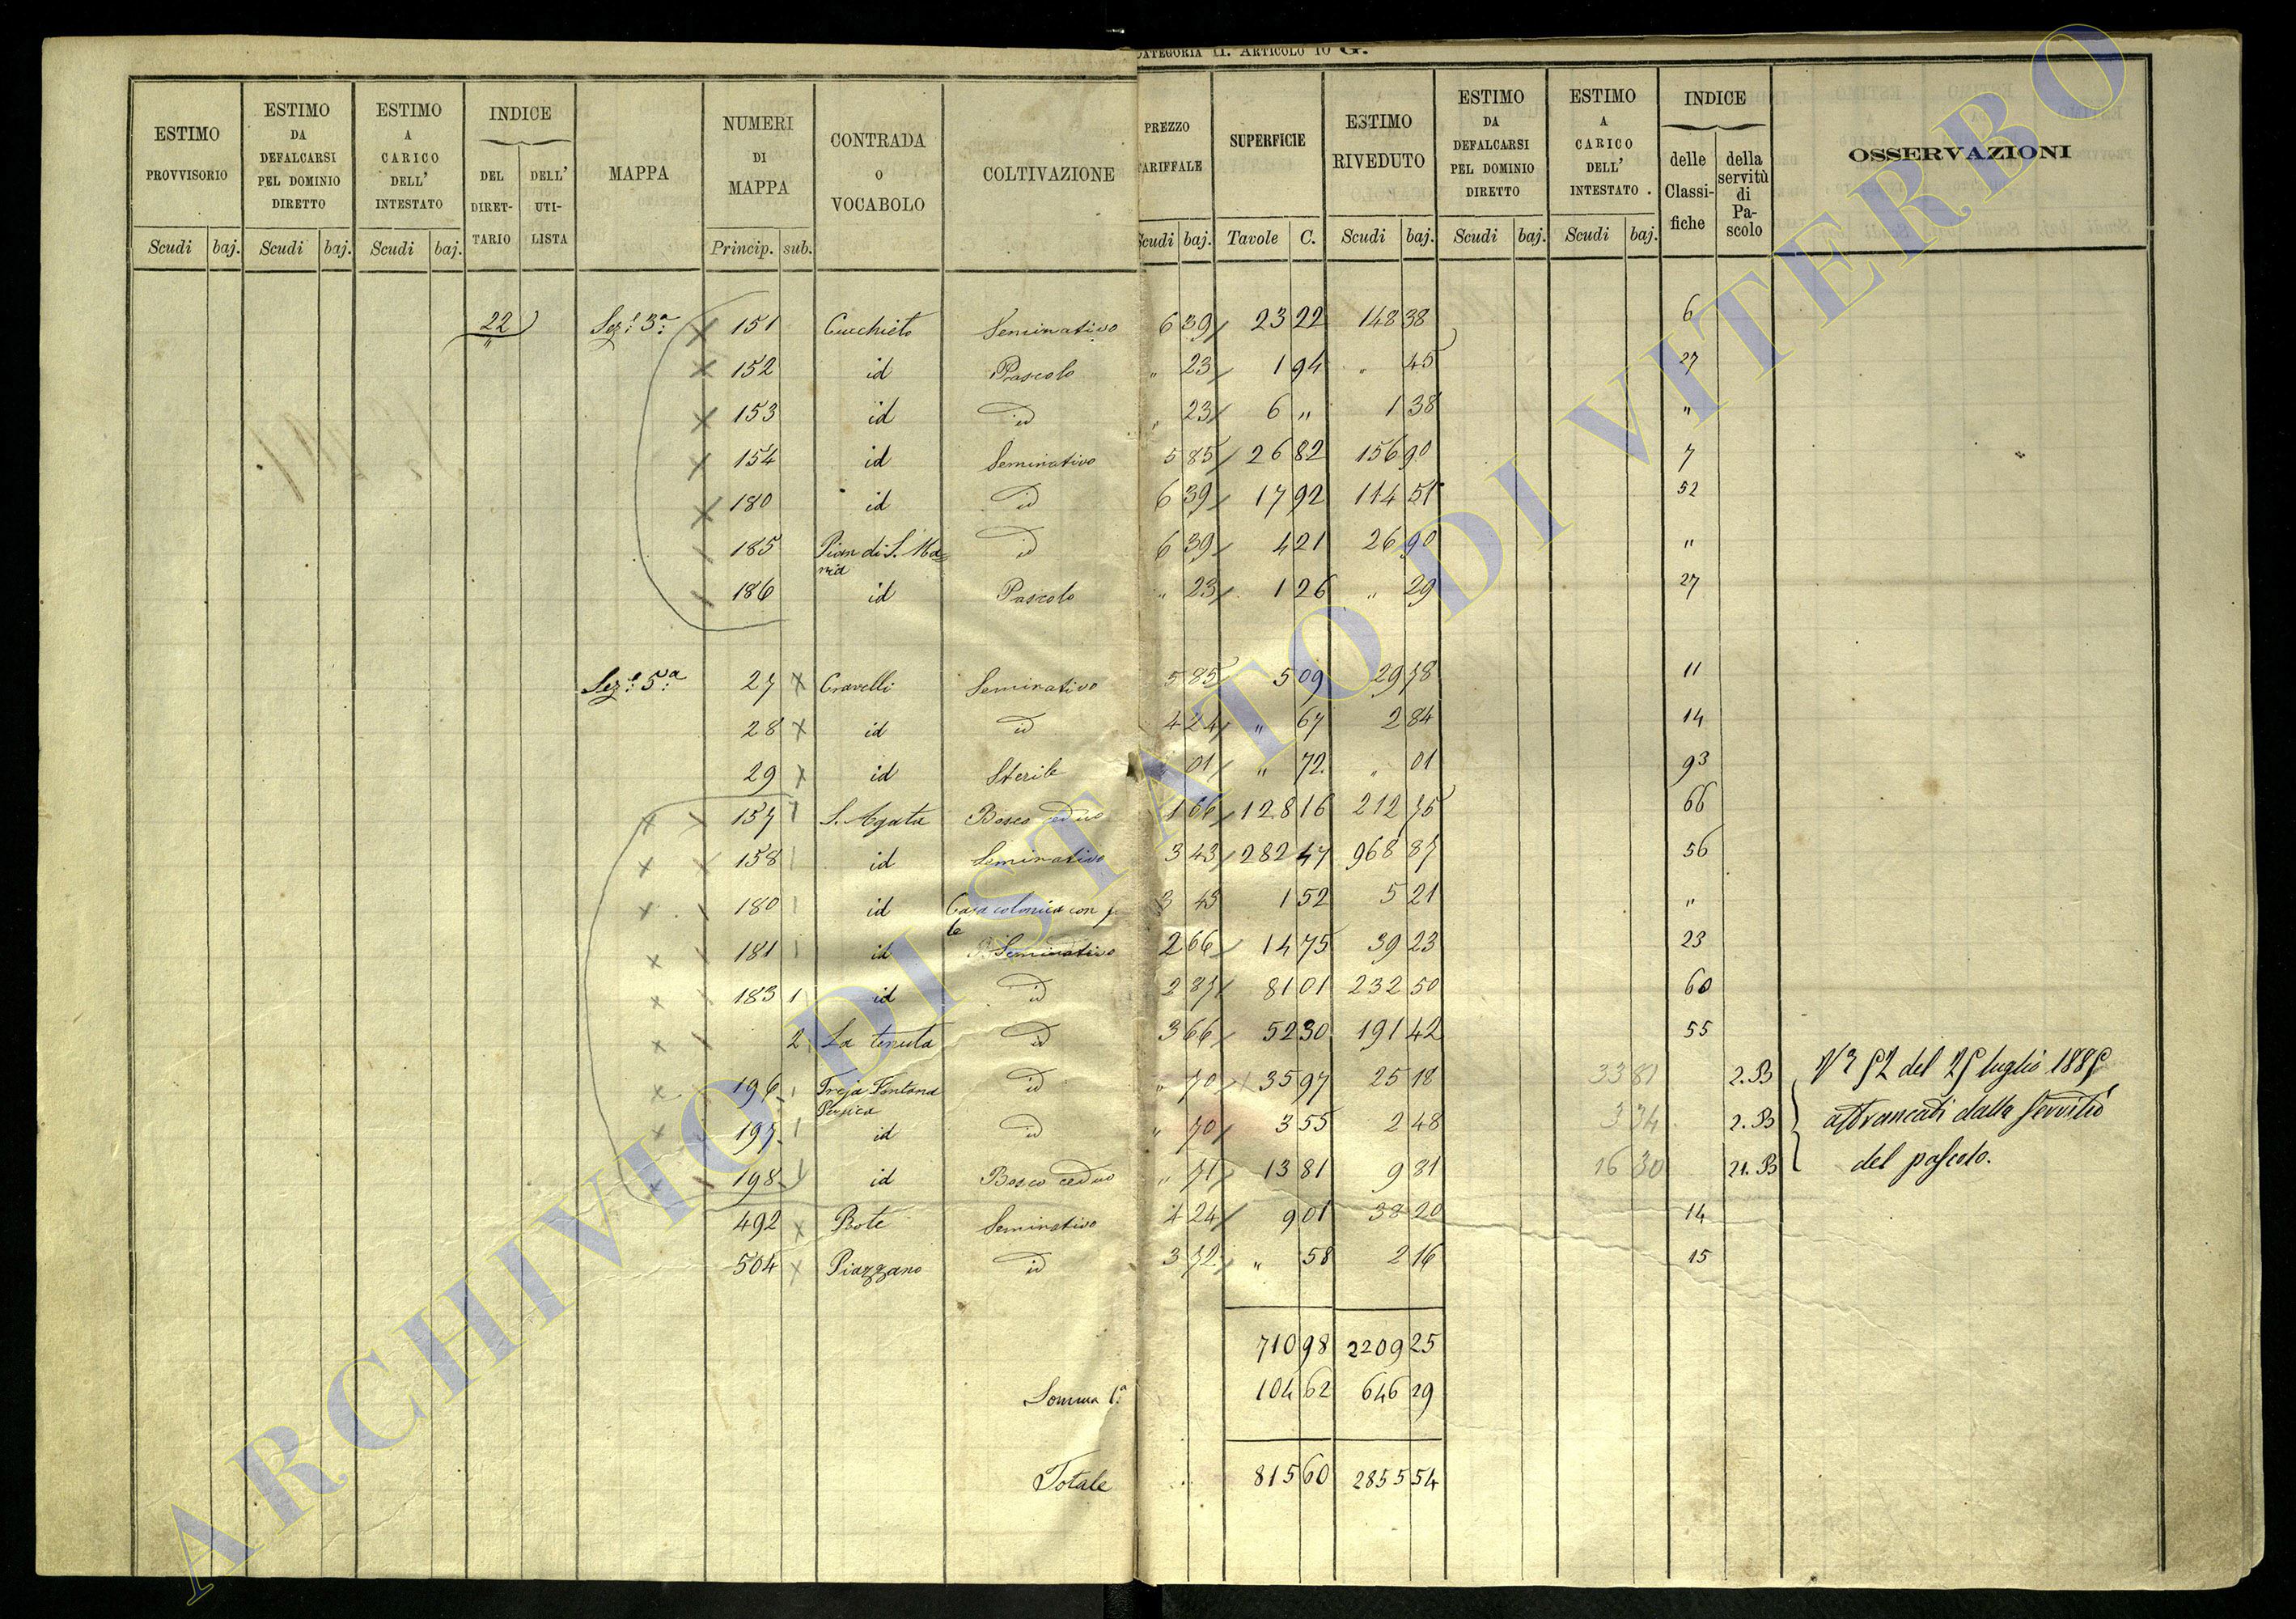 CATEGORIA II. ARTICOLO 10 G.
ESTIMO PROVVISORIO | ESTIMO DA DEFALCARSI PEL DOMINIO DIRETTO | ESTIMO A CARICO DELL' INTESTATO | INDICE | MAPPA | NUMERI DI MAPPA | CONTRADA O VOCABOLO | COLTIVAZIONE | PREZZO TARIFFALE | SUPERFICIE | ESTIMO RIVEDUTO | ESTIMO DA DEFALCARSI PEL DOMINIO DIRETTO | ESTIMO A CARICO DELL' INTESTATO | INDICE | OSSERVAZIONI
DEL DIRETTARIO | DELL' UTILISTA | delle Classifiche | della servitù di Pascolo
Scudi baj. | Scudi baj. | Scudi baj. | Princip. sub. | Scudi baj. | Tavole C. | Scudi baj. | Scudi baj. | Scudi baj.
22 Sez.e 3a 151 Cucchieto Seminativo 6 39 23 22 148 38 6
"
152 id Pascolo " 23 1 94 " 45 27
153 id id " 23 6 " 1 38 "
154 id Seminativo 5 85 26 82 156 90 7
180 id id 6 39 17 92 114 51 52
185 Pian di S. Maria id 6 39 4 21 26 90 "
186 id Pascolo " 23 1 26 " 29 27
Sez.e 5a 27 Cravelli Seminativo 5 85 5 09 29 78 11
28 id id 4 24 " 67 2 84 14
29 id Sterile " 01 " 72 " 01 93
157 S. Agata Bosco ceduo 1 66 128 16 212 75 66
158 id Seminativo 3 43 282 47 968 87 56
180 id Casa colonica con 3 43 1 52 5 21 "
181 id Seminativo 2 66 14 75 39 23 23
183 1 id id 2 87 81 01 232 50 60
2 La tenuta id 3 66 52 30 191 42 55
196 Treja Fontana Persica id " 70 35 97 25 18 33 81 2. B
197 id id " 70 3 55 2 48 3 34 2. B
198 id Bosco ceduo " 71 13 81 9 81 16 30 21. B
del 25 luglio 1885
affrancati dalla servitù
del pascolo.
492 Bote Seminativo 4 24 9 01 38 20 14
504 Piazzano id 3 72 " 58 2 16 15
710 98 2209 25
Somma 1a 104 62 646 29
Totale 815 60 2855 54
ARCHIVIO DI STATO DI VITERBO